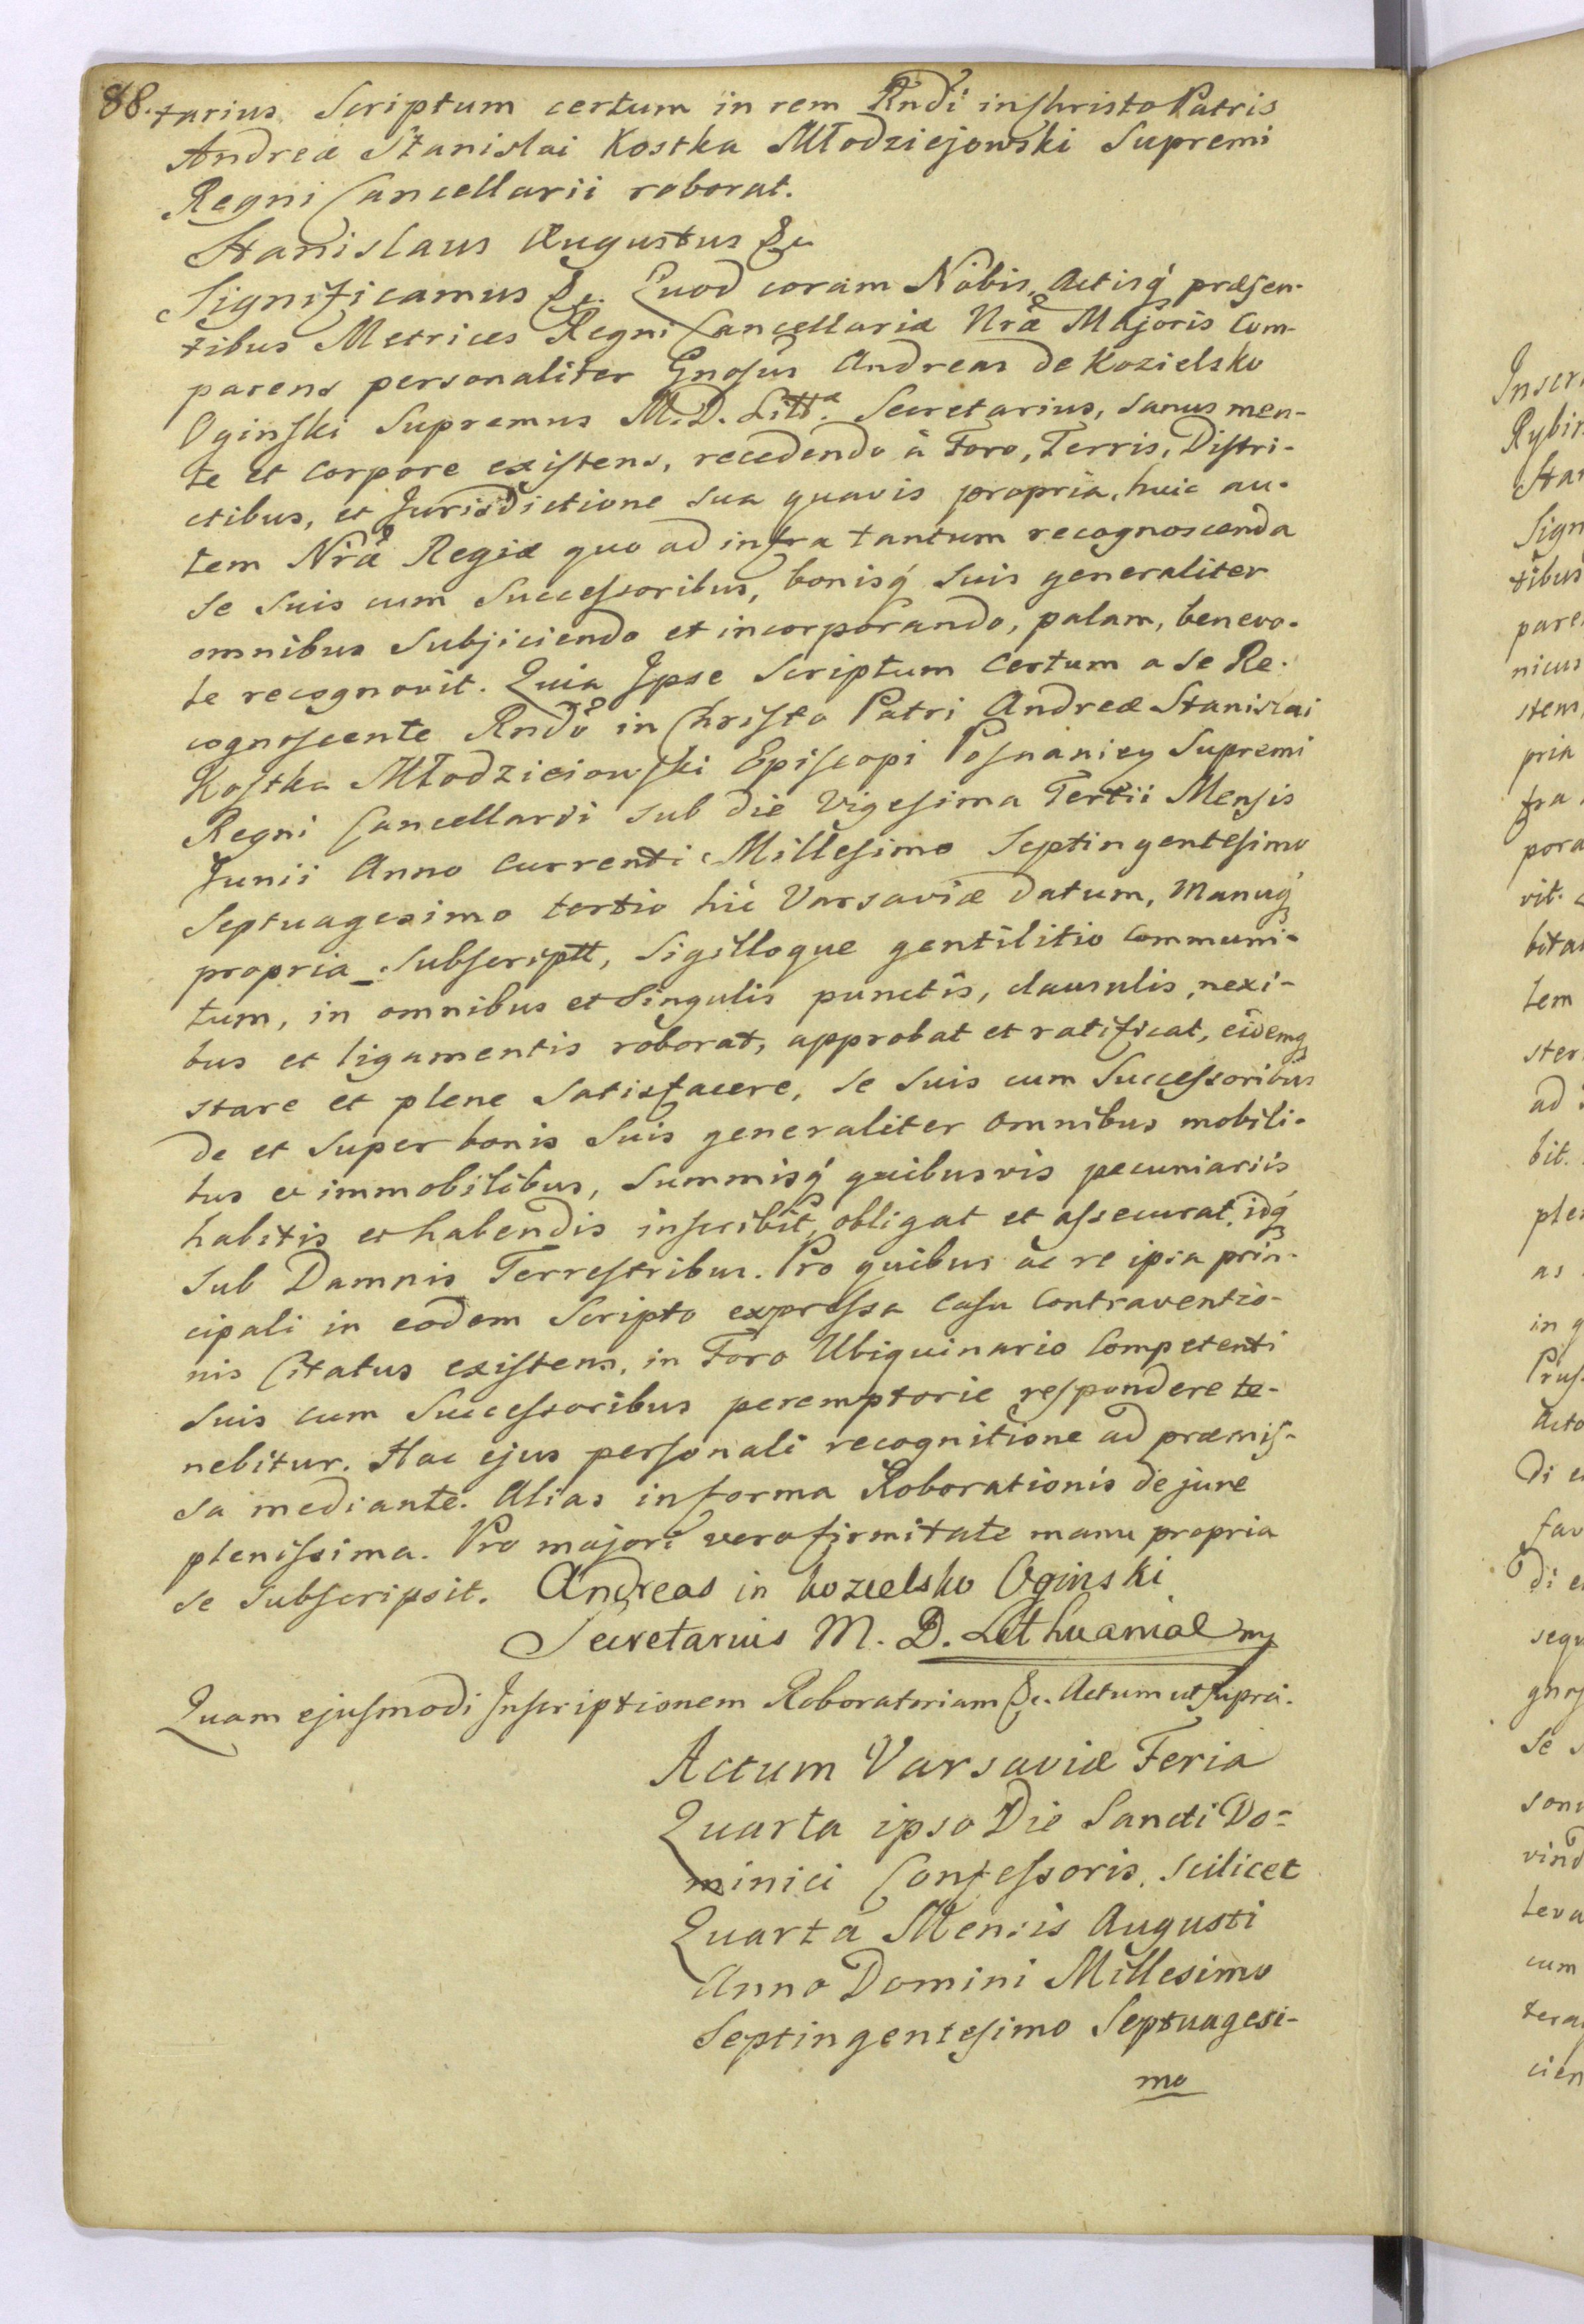 88. tarius Scriptum certum in rem Rndi in Christo Patris
Andreæ Stanislai Kostka Młodziejowski Supremi
Regni Cancellarii roborat.
Stanislaus Augustus &c
Significamus &c. Quod coram Nobis, Actisq́ præsen-
tibus Metrices Regni Cancellariæ Nræ Majoris Com-
parens personaliter Gnosus Andreas de Kozielsko
Oginski Supremus M. D. Litt. Secretarius, sanus men-
te et corpore existens, recedendo à Foro, Terris, Distri-
ctibus, et Jurisdictione sua quavis propria, huic au-
tem Nræ Regiæ quo ad infra tantum recognoscenda
se suis cum Successoribus, bonisq́ suis generaliter
omnibus Subjiciendo et incorporando, palam, benevo-
le recognovit. Quia Ipse Scriptum Certum a se Re-
cognoscente Rndo in Christo Patri Andreæ Stanislai
Kostka Młodzieiowski Episcopi Posnaniey Supremi
Regni Cancellarii sub die Vigesima Tertii Mensis
Junii Anno Currenti Millesimo Septingentesimo
Septuagesimo tertio hic Varsaviæ datum, Manuq́
propria Subscriptt, Sigilloque gentilitio communi-
tum, in omnibus et Singulis punctis, clausulis, nexi-
bus et ligamentis roborat, approbat et ratificat, eidemq
stare et plene Satisfacere, se suis cum Successoribus
de et super bonis Suis generaliter omnibus mobili-
bus et immobilibus, Summisq́ quibusvis pecuniariis
habitis et habendis inscribit, obligat et assecurat, idq́
sub Damnis Terrestribus. Pro quibus ac re ipsa prin-
cipali in eodem Scripto expressa casu Contraventio-
nis Citatus existens, in Foro Ubiquinario Competenti
suis cum Successoribus peremptorie respondere te-
nebitur. Hac ejus personali recognitione ad præmis-
sa mediante. Alias in forma Roborationis de jure
plenissima. Pro majori vero firmitate manu propria
se subscripsit. Andreas in kozielsko Oginski
Secretarius M. D. Lithuaniae mp
Quam ejusmodi Inscriptionem Roboratoriam &c. Actum ut supra.
Actum Varsaviæ Feria
Quarta ipso Die Sancti Do=
minici Confessoris, scilicet
Quarta Mensis Augusti
Anno Domini Millesimo
Septingentesimo Septuagesi-
mo
Rybin
Sign
tibus
pare
nicus
stem
pria
fra
pora
vit.
bita
tem
ster
ad
bit.
ple
as
in q
Prus
Acto
di e
fav
di e
sequ
gnos
se s
vind
leva
cum
tera
cien